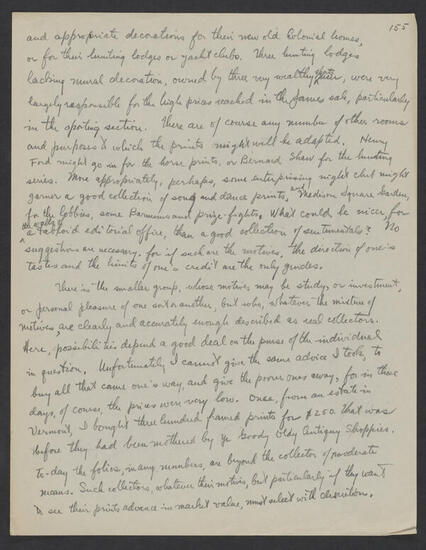 155
and appropriate decorations for their new old Colonial homes,
or for their hunting lodges or yacht clubs. Three hunting lodges
lacking mural decoration, owned by three very wealthy, were very
largely responsible for the high prices reached in the James sale, particularly
in the sporting section. There are of course any number of other rooms
and purposes to which the prints might well be adapted. Henry
Ford might go in for the horse prints, or Bernard Shaw for the hunting
series. More appropriately, perhaps, some enterprising night club might
garner a good collection of song and dance prints, and Madison Square Garden,
for the lobbies, some Barnums and prize-fights. What could be nicer, for
a tabloid editorial office, than a good collection of sentimentals? No
suggestions are necessary. for if such are the motives, the direction of one's
tastes and the limits of one's credit are the only guides.
There is the smaller group, whose motives may be study, or investment,
or personal pleasure of one sort or another, but who, whatever the mixture of
motives, are clearly and accurately enough described as real collectors.
Here, possibilities depend a good deal on the purse of the individual
in question. Unfortunately I cannot give the same advice I took, to
buy all that came one's way, and give the poorer ones away, for in those
days, of course, the prices were very low. Once, from an estate in
Vermont, I bought three hundred framed prints for $200. That was
before they had been mothered by Ye Goody Oldy Antiquy Shoppies.
To-day the folios, in any numbers, are beyond the collector of moderate
means. Such collectors, whatever their motives, but particularly if they want
to see their prints advance in market value, must select with discretion.